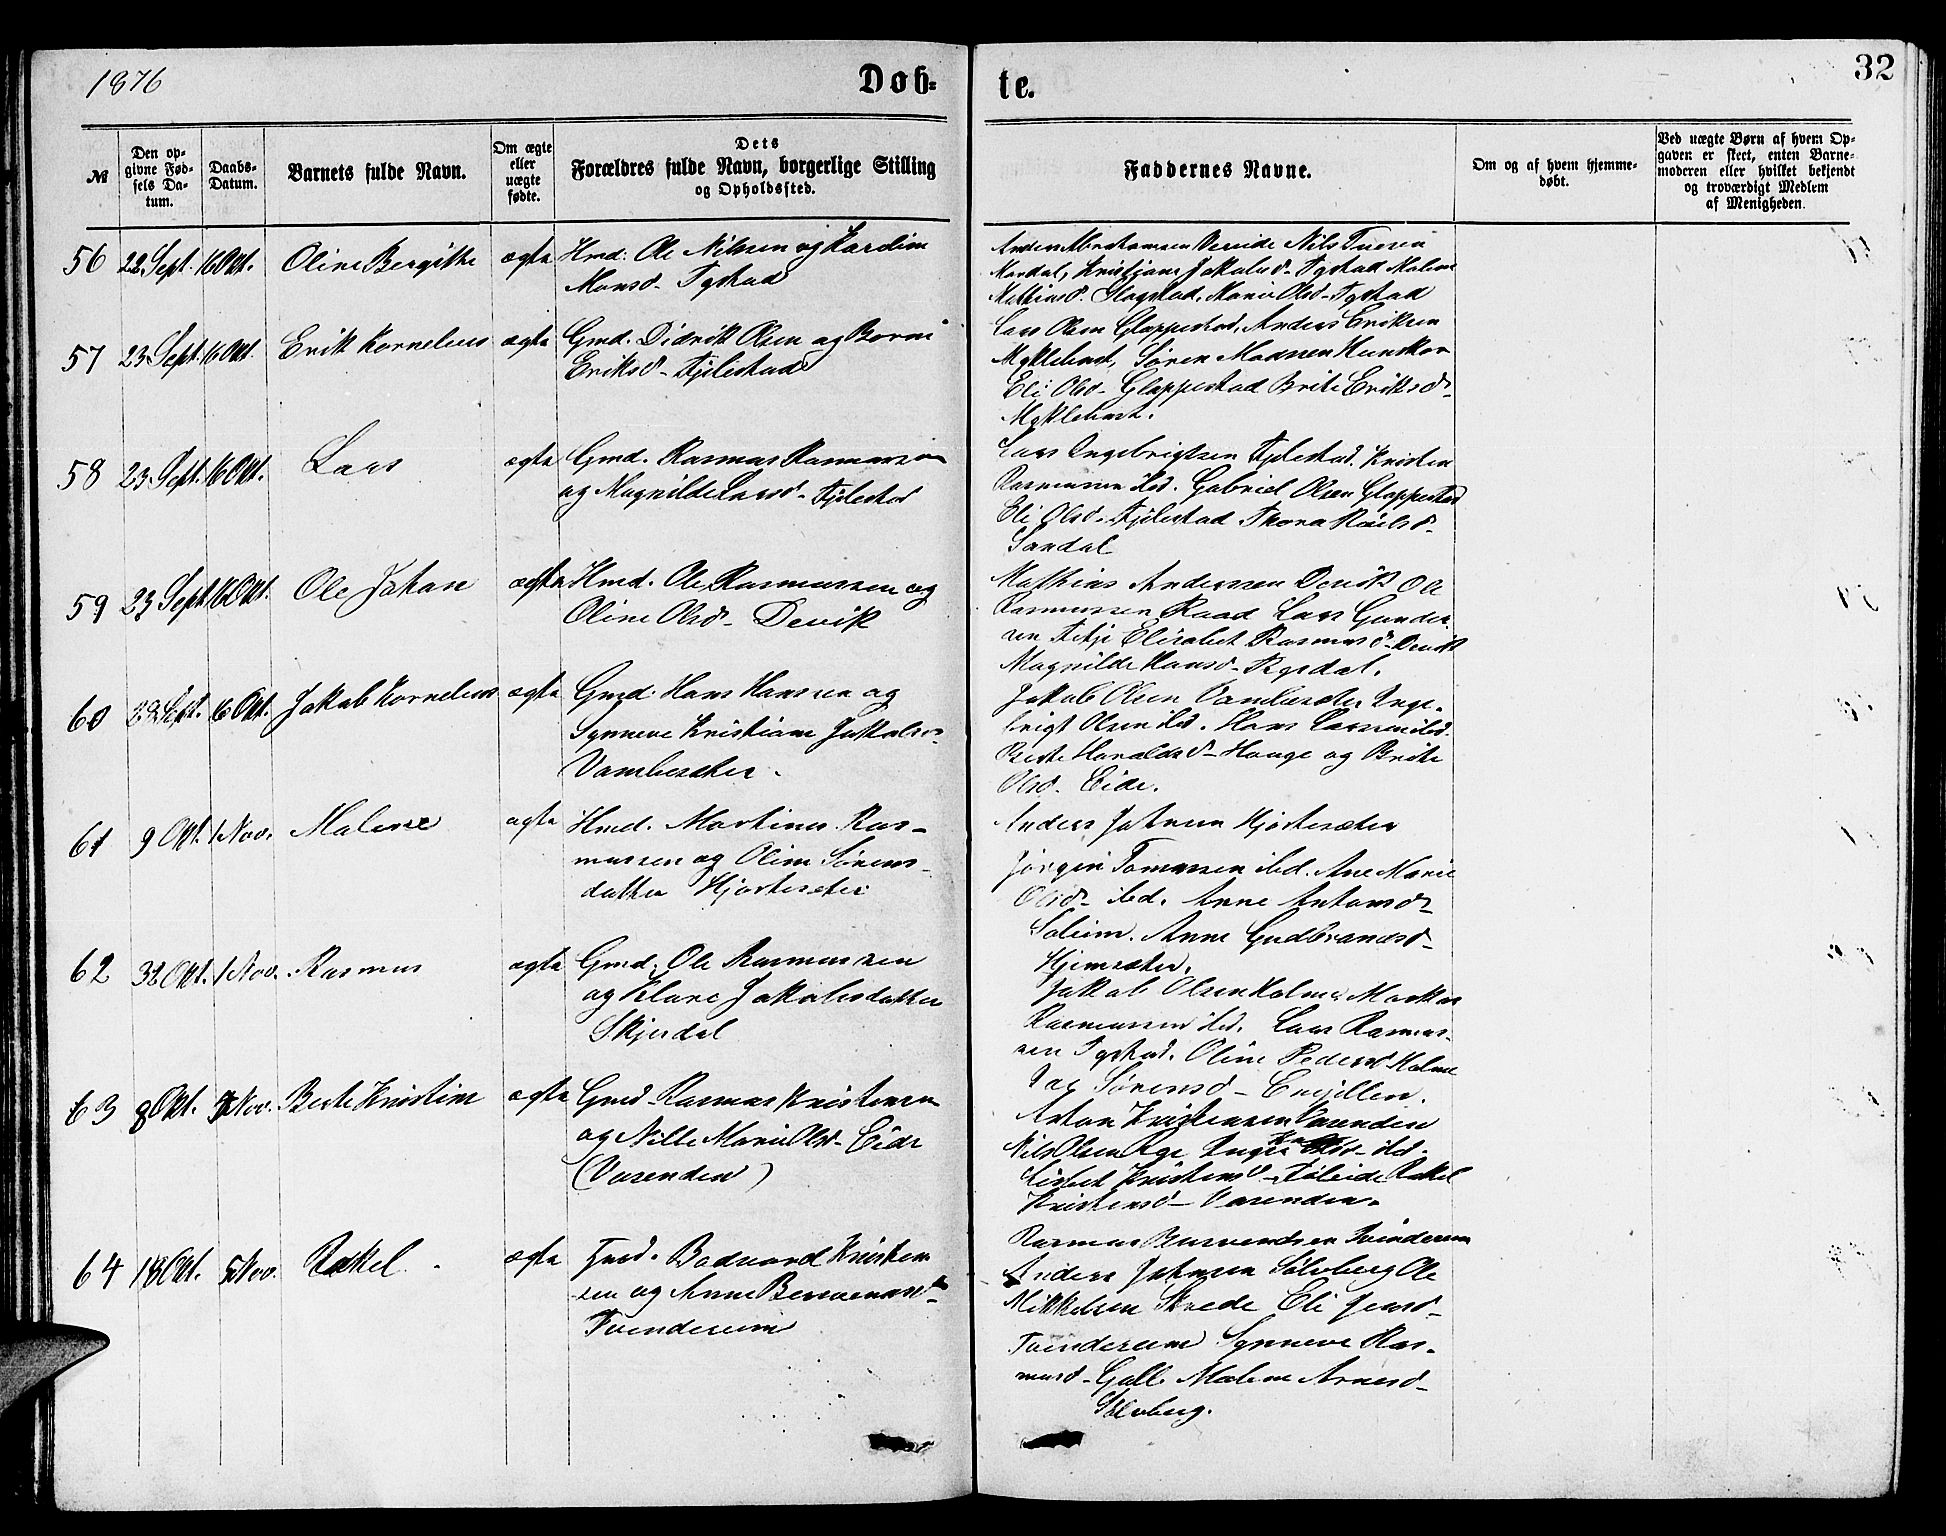 1876
Døb=
te.
32
№
Den op-
givne Fød-
sels Da-
tum.
Daabs-
Datum.
Barnets fulde Navn.
Om ægte
eller
uægte
fødte.
Dets
Forældres fulde Navn, borgerlige Stilling
og Opholdssted.
Faddernes Navne.
Om og af hvem hjemme-
døbt.
Ved uægte Børn af hvem Op-
gaven er skeet, enten Barne-
moderen eller hvilket bekjendt
og troværdigt Medlem
af Menigheden.
56 22 Sept. 16 Okt. Oline Bergitte ægte Hmd. Ole Nilsen og Karolin
Monsd. Tystad
Nils
Mardal, Kristjane Jakobsd. Tystad Malene
Mathiasd. Marie Olsd. Tystad
57 23 Sept. 16 Okt. Erik Kornelius ægte Gmd. Didrik Olsen og Borni
Eriksd. Fjelestad
Lars Olsen Gloppestad, Anders Eriksen
Myklebust, Søren Madsen Hunskor
Eli Olsd. Gloppestad Brite Eriksd.
Myklebust.
58 23 Sept. 16 Okt. Lars ægte Gmd. Rasmus Rasmussen
og Magnilde Larsd. Fjelestad
Lars Ingebrigtsen Fjelestad. Kristen
Rasmussen ibd. Gabriel Olsen Gloppestad
Eli Olsd. Fjelestad Thora
Sandal
59 23 Sept. 16 Okt. Ole Johan ægte Hmd. Ole Rasmussen og
Oline Olsd. Devik
Mathias Andersen Devik Ole
Rasmussen Raad Lars Gunder
sen Elisabet Rasmusd. Devik
Magnilde Hansd. Rysdal.
60 Sept. 16 Okt. Jakob Kornelius ægte Gmd. Hans Hansen og
Synneve Kristiane Jakobsd.
Vambeseter.
Jakob Olsen Vambeseter Inge-
brigt Olsen ibd. Hans Larsen ibd.
Berte Haraldsd. Hauge og Brite
Olsd. Eide.
61 9 Okt. 1 Nov. Malene ægte Hmd. Martinus Ras-
mussen og Oline Sørens-
datter Hjorteseter
Anders Johnsen Hjorteseter
Jørgen Tomassen ibd. Ane Marie
Olsd. ibd. Anne Antonsd.
Soleim. Anne Gudbrandsd.
Hjemseter.
62 Okt. 1 Nov. Rasmus ægte Gmd. Ole Rasmussen
og Klare Jakobsdatter
Skjerdal
Jakob Olsen Holme Markus
Rasmussen ibd. Lars Rasmus-
sen Tystad. Oline Pedersd. Holme
Sørensd.
63 8 Okt. 5 Nov. Berte Kristine ægte Gmd. Rasmus Kristensen
og Nille Marie Olsd. Eide
(Varenden)
Anton Kristensen Varenden
Nils Olsen Inger ibd.
Lisbet Kristensd. Rakel
Kristensd. Varenden.
64 18 Okt. 5 Nov. Rakel ægte Gmd. Bodvard Kristen
sen og Anne Berventsd.
Tvinderum
Rasmus Berventsen Tvinderum
Anders Johnsen Solvberg Ole
Mikkelsen Skrede Eli Jensd.
Tvinderum Synneve Ras-
musd. Malene Arnesd.
Solvberg.